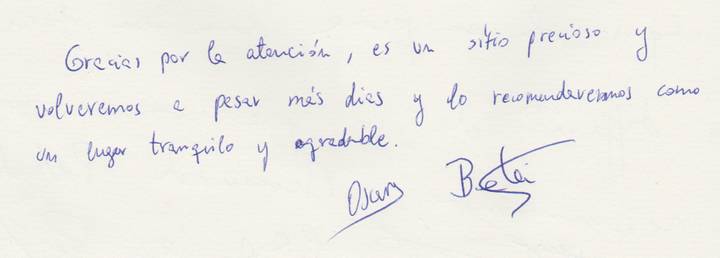 Gracias por la atención, es un sitio precioso y
volveremos a pesar más dias y lo recomendaremos como
un lugar tranquilo y agradable.
Oscar